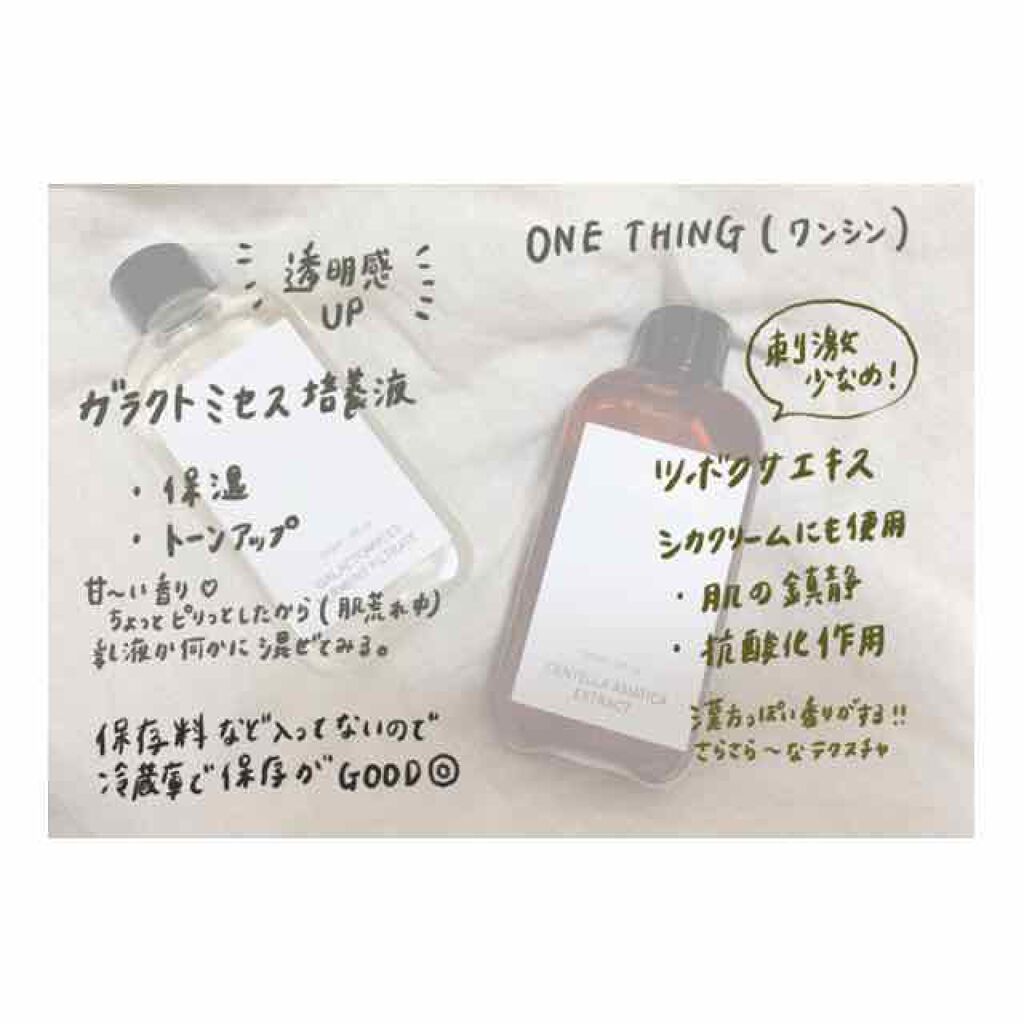 ONE THING (ワンシン)
透明感
UP
ガラクトミセス培養液
・保湿
・トーンアップ
甘〜い香り♡
ちょっとピリっとしたから(肌荒れ中)
乳液か何かに混ぜてみる。
保存料など入ってないので
冷蔵庫で保存がGOOD◎
刺激
少なめ!
ツボクサエキス
シカクリームにも使用
・肌の鎮静
・抗酸化作用
漢方っぽい香りがする!!
さらさら〜なテクスチャ
GALACTOMYCES
FERMENT FILTRATE
CENTELLA ASIATICA
EXTRACT